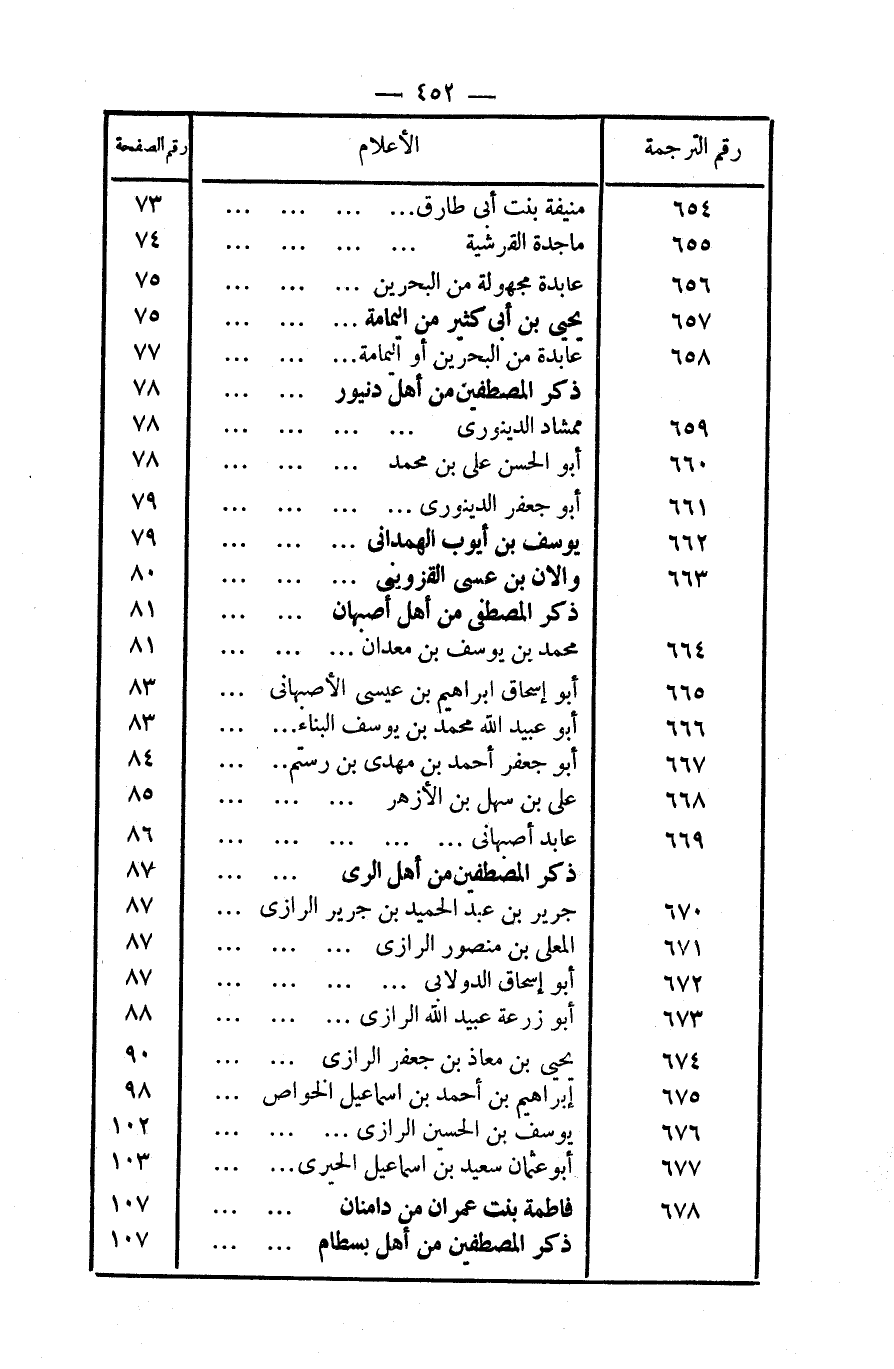 — ٤٥٢ —
رقم الترجمة الأعلام رقم الصفحة
٦٥٤ منيفة بنت أبى طارق... ... ... ... ٧٣
٦٥٥ ماجدة القرشية ... ... ... ... ٧٤
٦٥٦ عابدة مجهولة من البحرين ... ... ... ٧٥
٦٥٧ يحيى بن أبى كثير من اليمامة ... ... ... ٧٥
٦٥٨ عابدة من البحرين أو اليمامة... ... ... ٧٧
ذكر المصطفين من أهل دنيور ... ... ٧٨
٦٥٩ ممشاد الدينورى ... ... ... ... ٧٨
٦٦٠ أبو الحسن على بن محمد ... ... ... ٧٨
٦٦١ أبو جعفر الدينورى ... ... ... ... ٧٩
٦٦٢ يوسف بن أيوب الهمدانى ... ... ... ٧٩
٦٦٣ والان بن عسى القزوينى ... ... ... ٨٠
ذكر المصطفى من أهل أصبهان ... ... ٨١
٦٦٤ محمد بن يوسف بن معدان ... ... ... ٨١
٦٦٥ أبو إسحاق ابراهيم بن عيسى الأصبهانى ... ٨٣
٦٦٦ أبو عبيد الله محمد بن يوسف البناء... ... ٨٣
٦٦٧ أبو جعفر أحمد بن مهدى بن رستم.. ... ٨٤
٦٦٨ على بن سهل بن الأزهر ... ... ... ٨٥
٦٦٩ عابد أصبهانى ... ... ... ... ... ٨٦
ذكر المصطفين من أهل الرى ... ... ٨٧
٦٧٠ جرير بن عبد الحميد بن جرير الرازى ... ٨٧
٦٧١ المعلى بن منصور الرازى ... ... ... ٨٧
٦٧٢ أبو إسحاق الدولابى ... ... ... ... ٨٧
٦٧٣ أبو زرعة عبيد الله الرازى ... ... ... ٨٨
٦٧٤ يحيى بن معاذ بن جعفر الرازى ... ... ٩٠
٦٧٥ إبراهيم بن أحمد بن اسماعيل الخواص ... ٩٨
٦٧٦ يوسف بن الحسين الرازى ... ... ... ١٠٢
٦٧٧ أبو عثمان سعيد بن اسماعيل الحيرى... ... ١٠٣
٦٧٨ فاطمة بنت عمران من دامنان ... ... ١٠٧
ذكر المصطفين من أهل بسطام ... ... ١٠٧